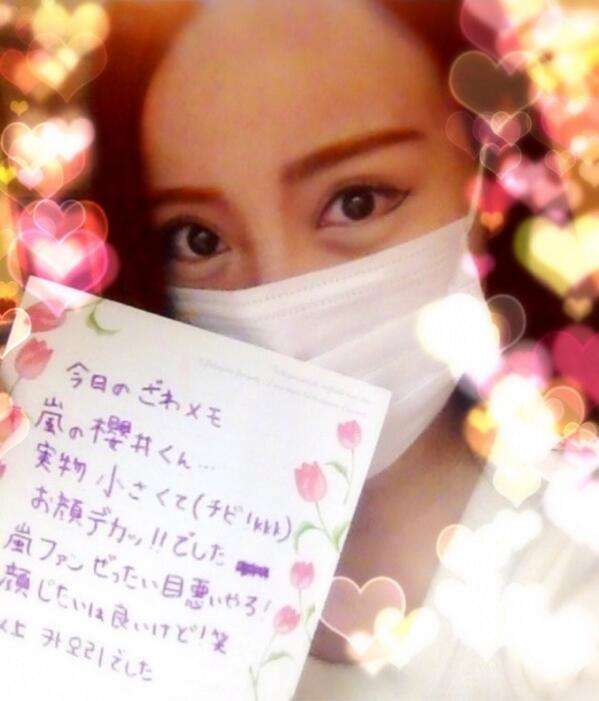 今日のざわメモ
嵐の櫻井くん…
実物 小さくて(チビ!kkk)
お顔デカッ!!でした
嵐ファンぜったい目悪いやろ!
顔じたいは良いけど!笑
以上 카오리でした